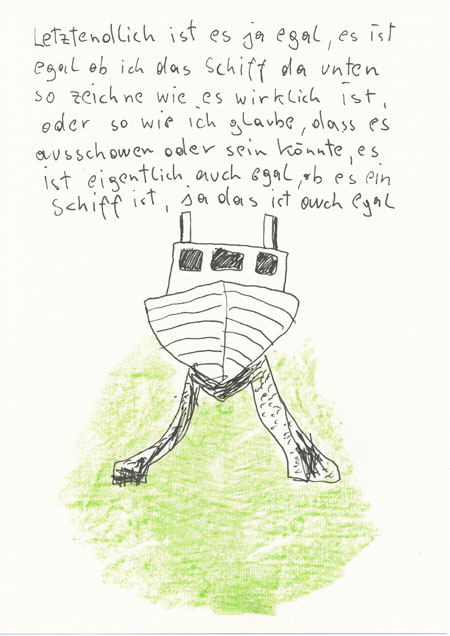 Letztendlich ist es ja egal, es ist
egal ob ich das Schiff da unten
so zeichne wie es wirklich ist,
oder so wie ich glaube, dass es
ausschauen oder sein könnte, es
ist eigentlich auch egal, ob es ein
Schiff ist, ja das ist auch egal